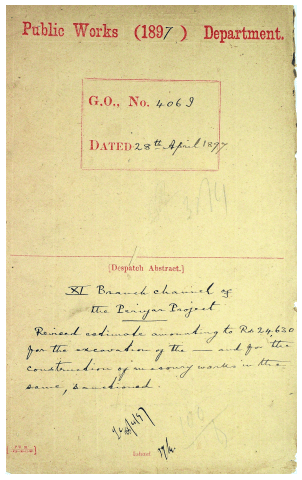 Public Works (1897) Department.
G.O., No. 406 I
DATED 28th April 1897
[Despatch Abstract.]
XI Branch channel of
the Periyar Project
Revised estimate amounting to Rs 24,620
for the excavation of the — and for the
construction of masonry works in the
same, sanctioned.